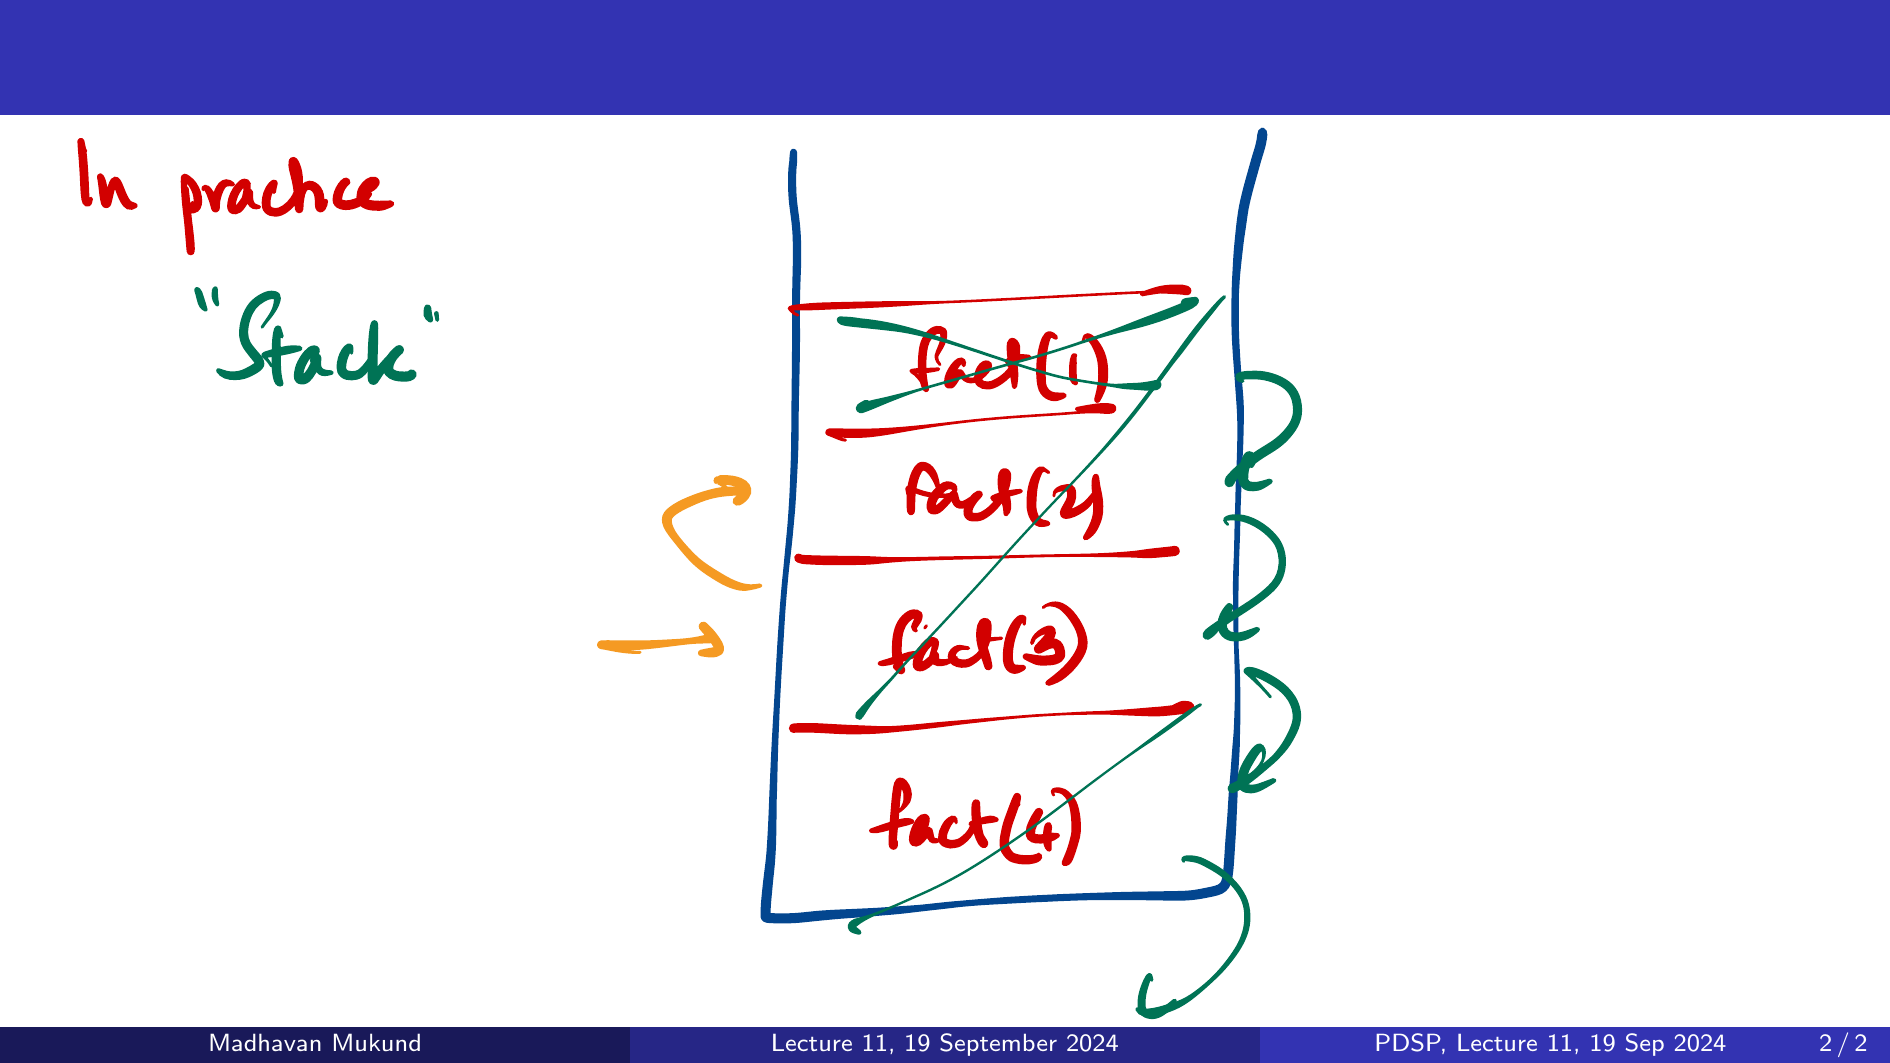 In practice
"Stack"
fact(1)
fact(2)
fact(3)
fact(4)
Madhavan Mukund
Lecture 11, 19 September 2024
PDSP, Lecture 11, 19 Sep 2024
2 / 2